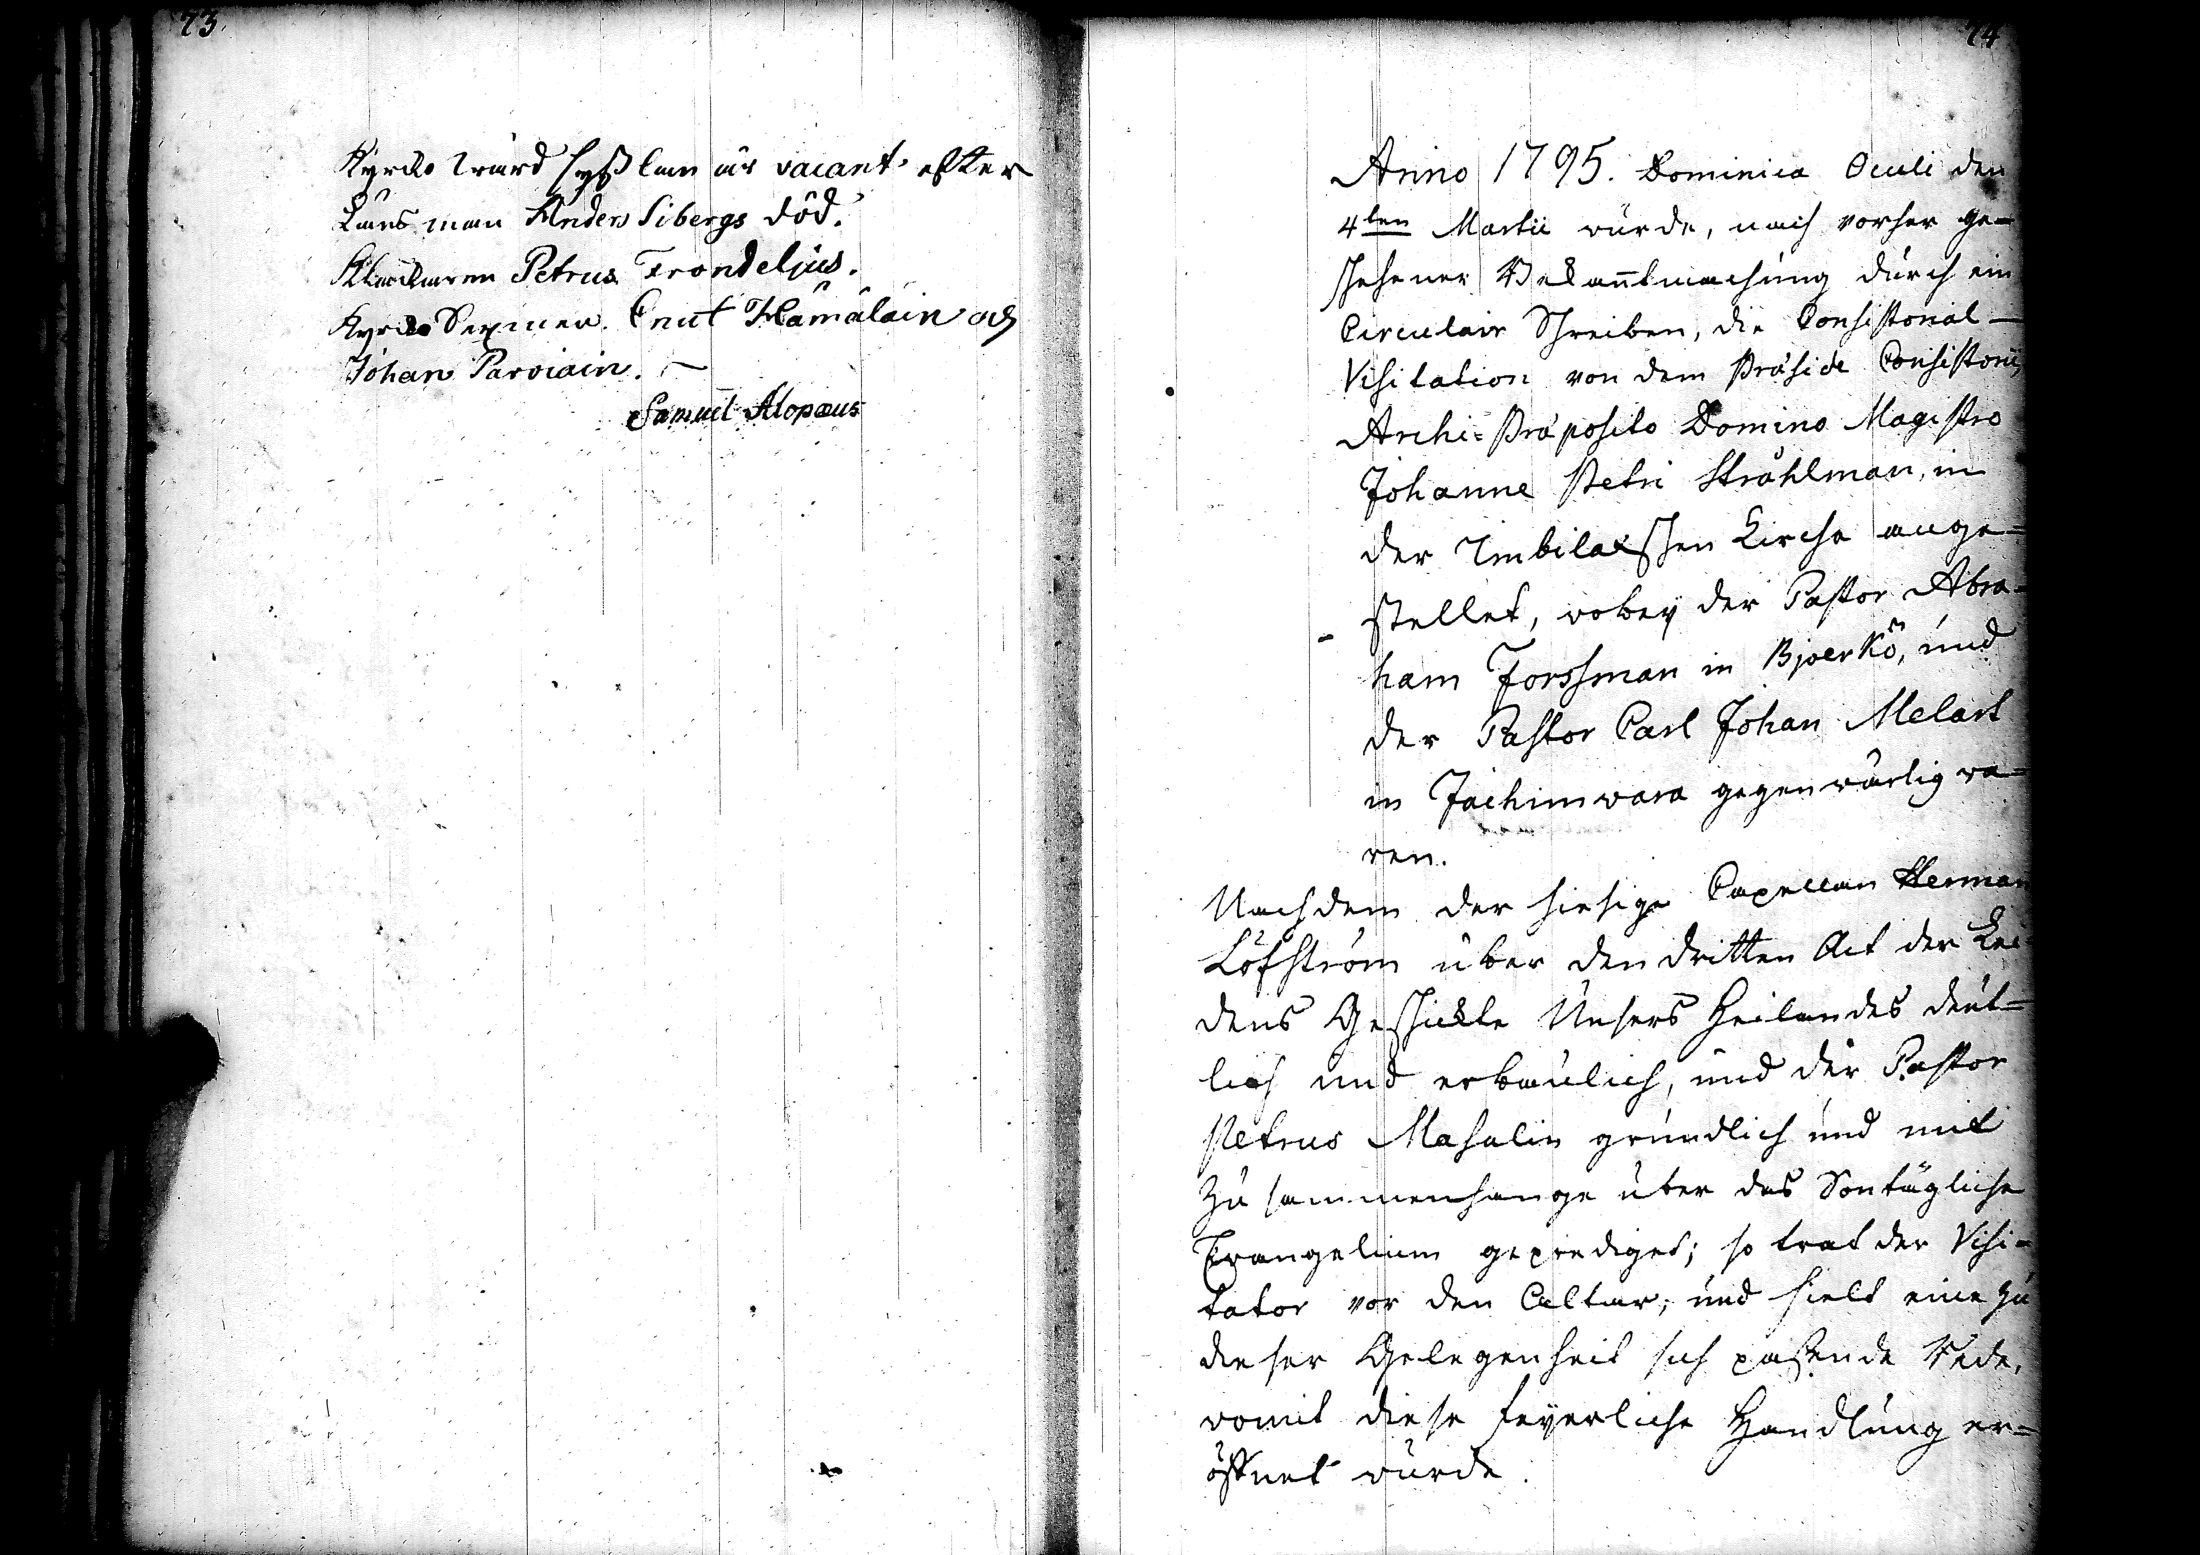 73
Kyrcko wärd sysslan är vacant efter
Läns man Anders Sibergs död.
Klockaren Petrus Frondeljus.
Kyrcko Sexmen. Cnut Hämäläin och
Johan Parviain. —
Samuel Alopæus
74
Anno 1795. Dominica Oculi den
4ten Martii wurde, nach vorher ge-
schehener Bekanntmachung durch ein
Circulair Schreiben, die Consistorial-
Visitation von dem Präside Consistorii,
Archi-Präposito Domino Magistro
Johanne Petri Stråhlman, in
der Imbilaxschen Kirche ange-
stellet, wobey der Pastor Abra-
ham Forssman in Bjoerkö, und
der Pastor Carl Johan Melart
in Jachimwara gegenwärtig wa-
ren.
Nachdem der hiesige Capellan Herman
Löfström über den dritten Act der Lei
dens Geschichte Unsers Heilandes deut-
lich und erbaulich, und der Pastor
Petrus Masalin gründlich und mit
Zusammenhange über das Sontägliche
Evangelium geprediget; so trat der Visi-
tator vor den Altar, und hielt eine zu
dieser Gelegenheit sich paßende Rede,
womit diese feyerliche Handlung er-
öffnet wurde.